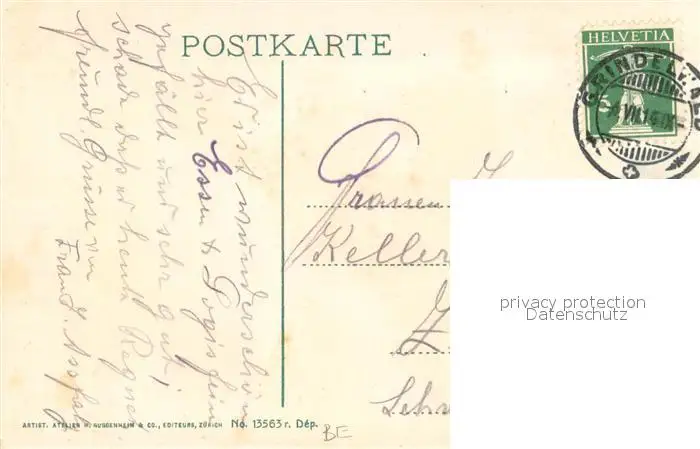 POSTKARTE
HELVETIA
GRINDELWALD
Es ist wunderschön
hier Essen & Logis fein
gefällt uns sehr gut!
schade daß es heute Regnet.
freundl. Grüsse von
Frau
Keller
privacy protection
Datenschutz
ARTIST. ATELIER H. GUGGENHEIM & CO., EDITEURS, ZÜRICH No. 13563 r. Dép.
BE